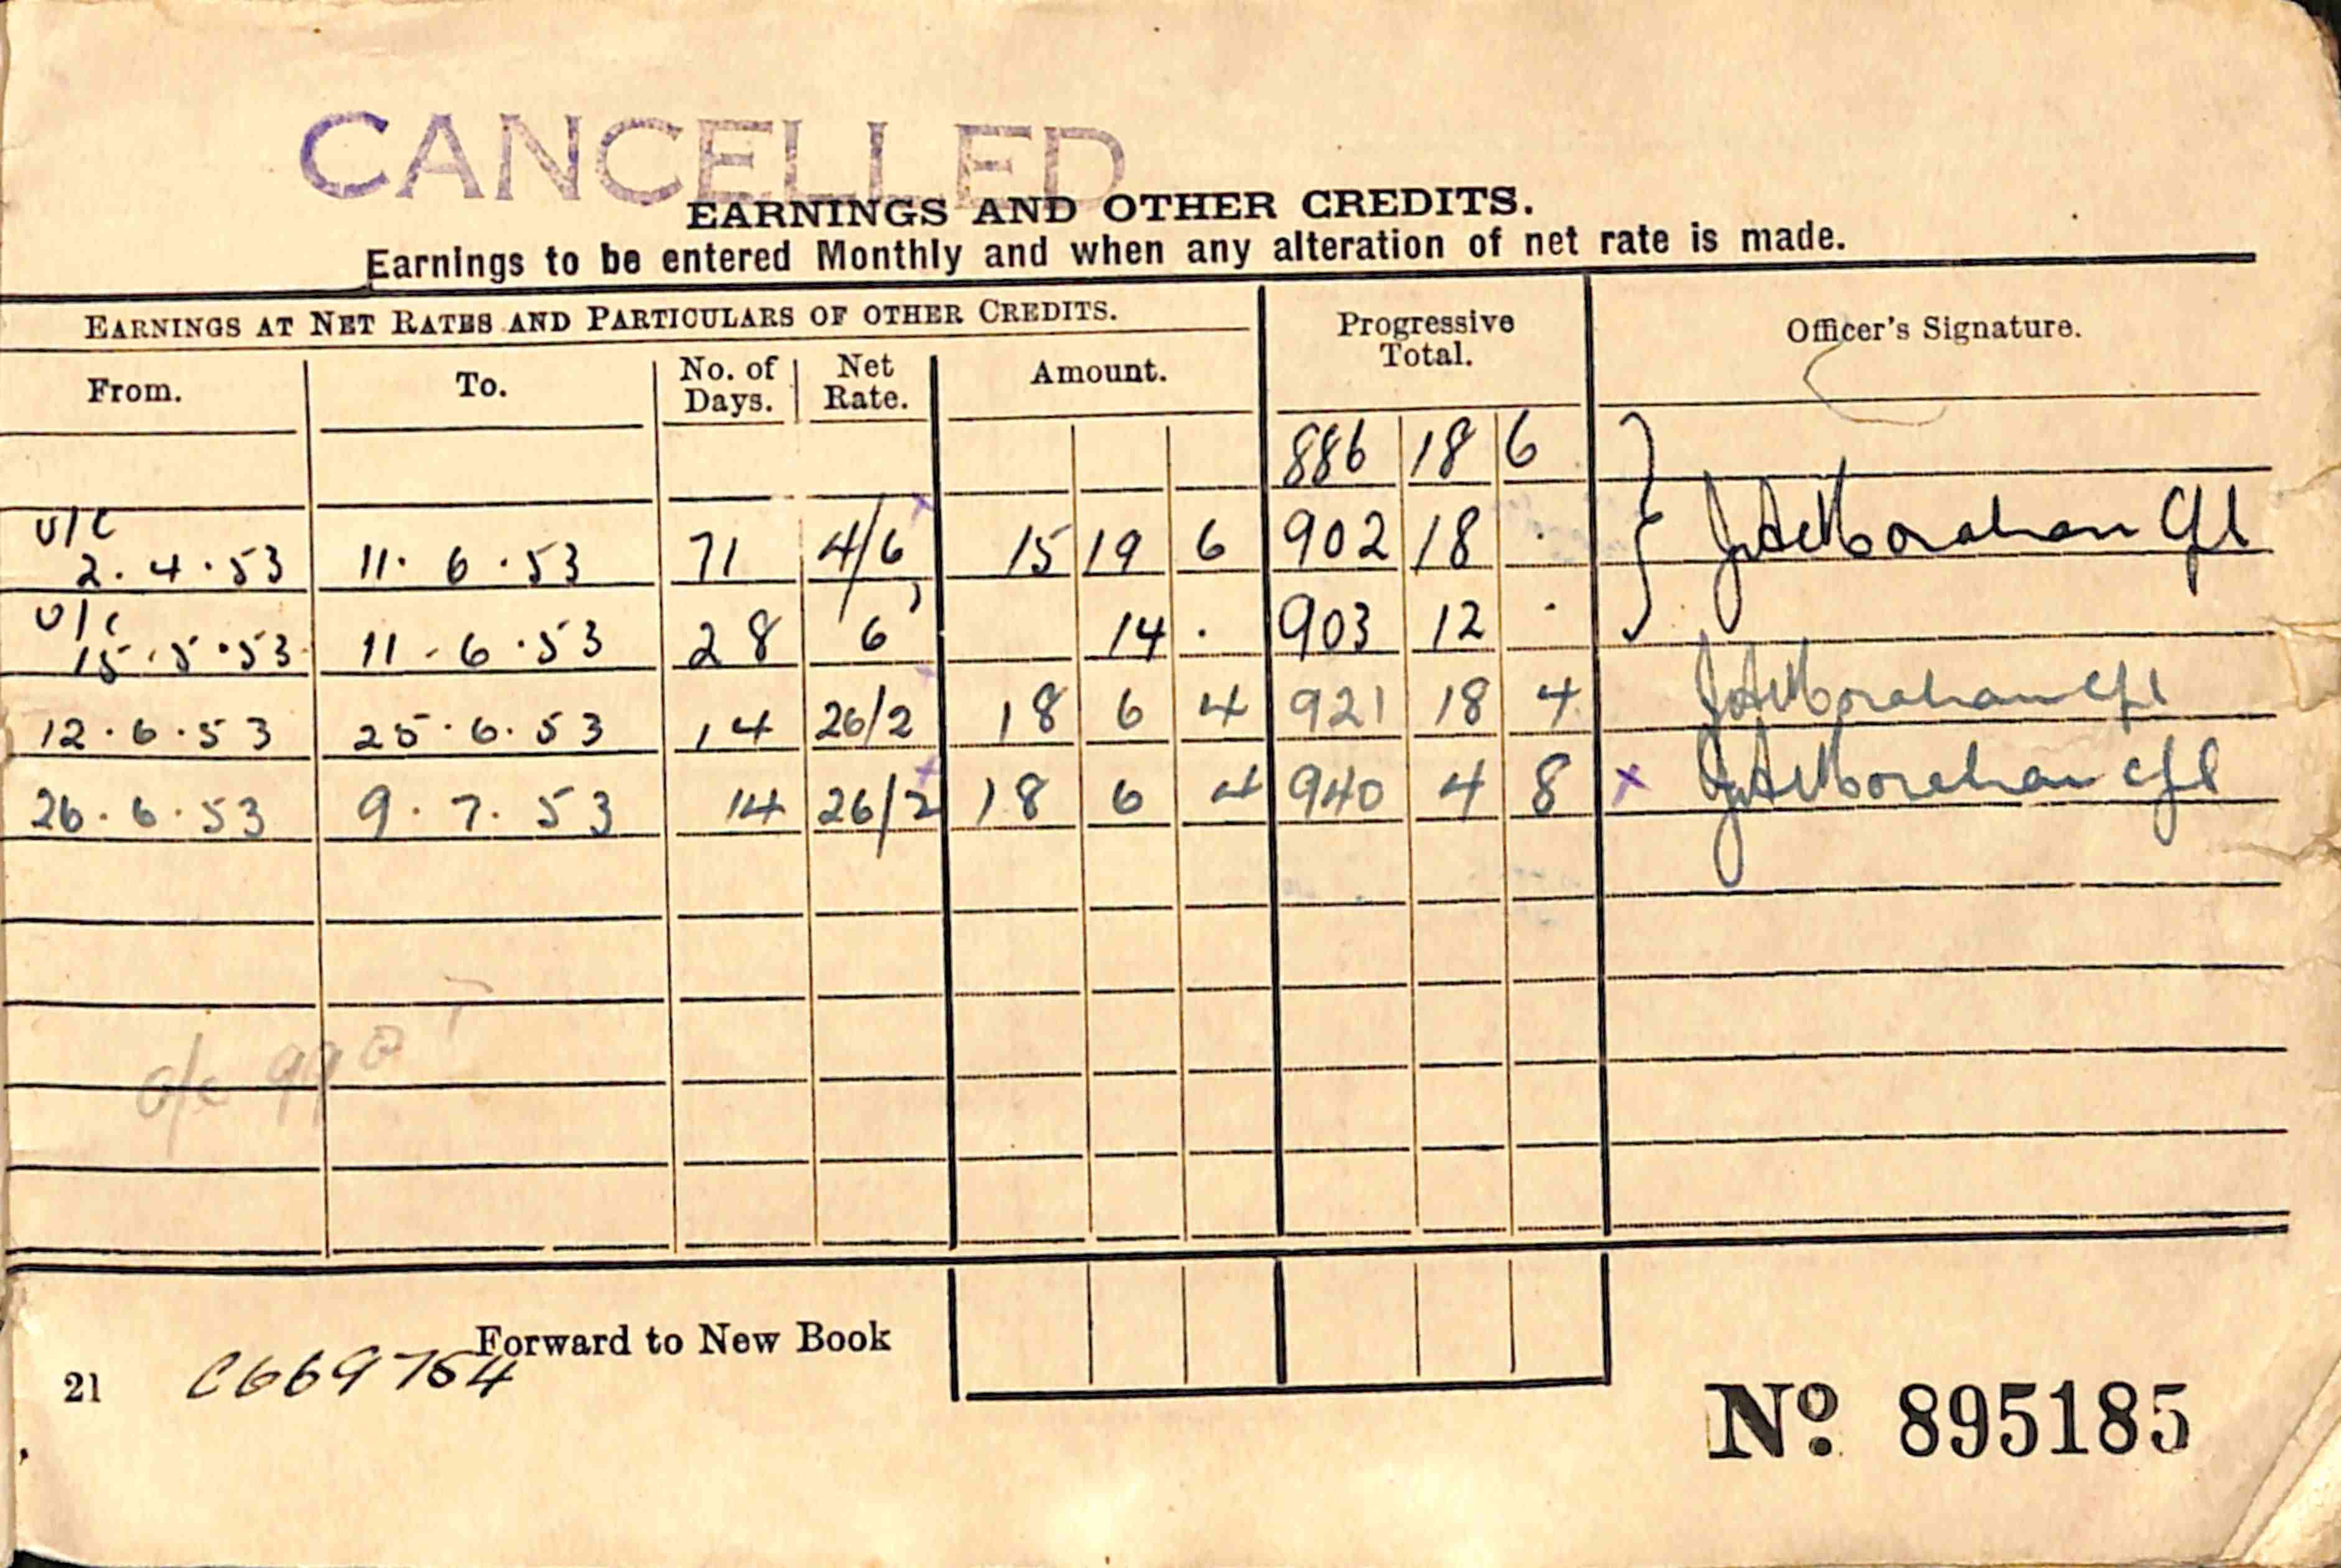 CANCELLED
EARNINGS AND OTHER CREDITS.
Earnings to be entered Monthly and when any alteration of net rate is made.
EARNINGS AT NET RATES AND PARTICULARS OF OTHER CREDITS. Progressive Total. Officer's Signature.
From. To. No. of Days. Net Rate. Amount.
886 18 6
U/C 2.4.53 11.6.53 71 4/6 15 19 6 902 18 .
U/C 15.5.53 11-6.53 28 6 14 . 903 12 .
12.6.53 25.6.53 14 26/2 18 6 4 921 18 4
26.6.53 9.7.53 14 26/2 18 6 4 940 4 8 x
o/c 990
Forward to New Book
21 C669754
No. 895185